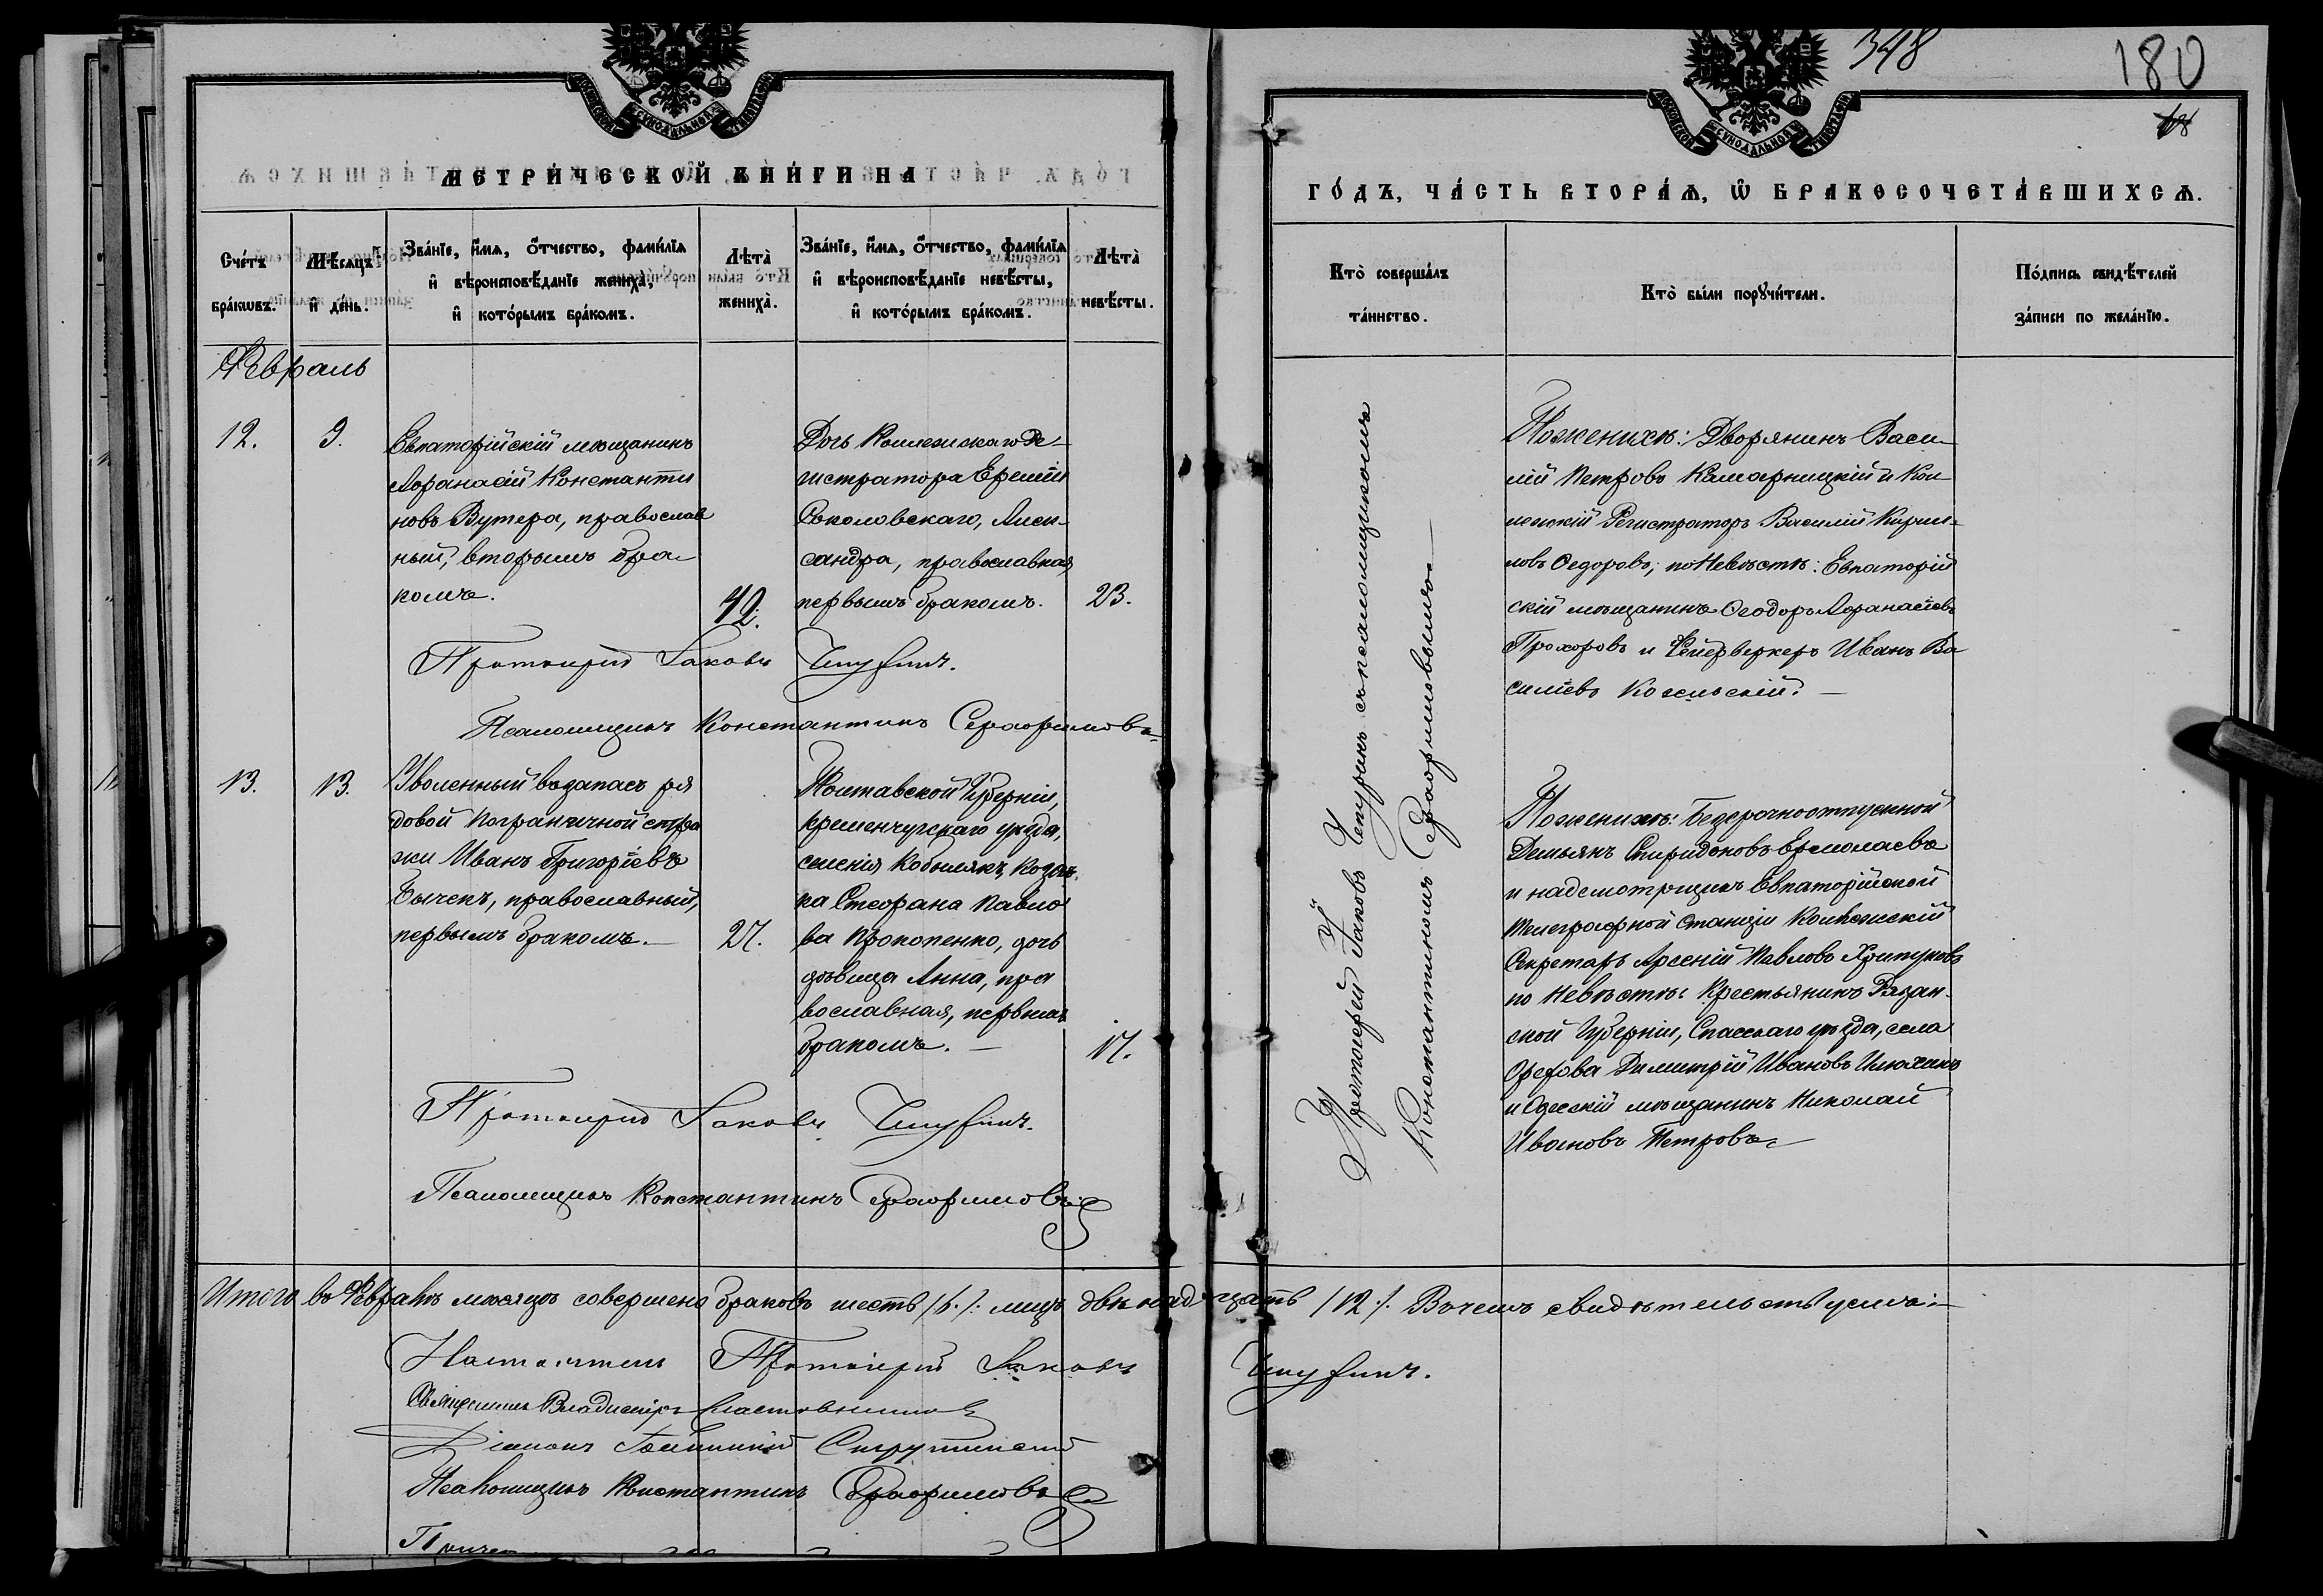 348
180
МОСКОВСКОЙ СѴНОДАЛЬНОЙ ТИПОГРАФІИ
МОСКОВСКОЙ СѴНОДАЛЬНОЙ ТИПОГРАФІИ
МЕТРИ́ЧЕСКОЙ КНИ́ГИ НА
ГО́ДЪ, ЧА́СТЬ ВТОРА́Ѧ, Ѿ БРАКОСОЧЕТА́ВШИХСѦ.
Сче́тъ бра́кѡвъ.
Мѣ́сяцъ и҆ де́нь.
Зва́нїе, и҆́мѧ, ѻ҆́тчество, фами́лїѧ
и҆ вѣроисповѣ́данїе жениха̀,
и҆ кото́рымъ бра́комъ.
Лѣта̀ жениха̀.
Зва́нїе, и҆́мѧ, ѻ҆́тчество, фами́лїѧ
и҆ вѣроисповѣ́данїе невѣ́сты,
и҆ кото́рымъ бра́комъ.
Лѣта̀ невѣ́сты.
Кто̀ соверша́лъ та́инство.
Кто̀ бы́ли порꙋчи́тели.
По́дпись свидѣ́телей за́писи по жела́нїю.
Февраль
12.
9.
Евпаторійскій мѣщанинъ
Аѳанасій Константи
новъ Вутера, православ
ный, вторымъ бра-
комъ.
42.
Дочь Коллежскаго Ре-
гистратора Ереміи
Соколовскаго, Алек-
сандра, православная
первымъ бракомъ.
23.
Протоіерей Іаковъ Чепуринъ съ псаломщикомъ
Константиномъ Серафимовымъ
По женихѣ: Дворянинъ Васи-
лій Петровъ и Кол
лежскій Регистраторъ Василій Кирил-
ловъ Ѳедоровъ; по Невѣстѣ: Евпаторій
скій мѣщанинъ Ѳеодоръ Аѳанасіевъ
Прохоровъ и Фейерверкеръ Иванъ Ва
силіевъ
Протоіерей Іаковъ Чепуринъ.
Псаломщикъ Константинъ Серафимовъ
13.
13.
Уволенный въ запасъ ря
довой Пограничной стра
жи Иванъ Григоріевъ
Бычекъ, православный,
первымъ бракомъ.
27.
Полтавской Губерніи,
Кременчугскаго уѣзда,
селенія Кобылякъ, Коза-
ка Стефана Павло
ва Прокопенко, дочь
дѣвица Анна, пра
вославная, первымъ
бракомъ.
17.
По женихѣ: безсрочноотпускной
Демьянъ Спиридоновъ Ермолаевъ
и надсмотрщикъ Евпаторійской
телеграфной станціи Коллежскій
Секретарь Арсеній Павловъ Хрипуновъ
по Невѣстѣ: Крестьянинъ Рязан-
ской Губерніи, Спасскаго уѣзда, села
Димитрій Ивановъ
и Одесскій мѣщанинъ Николай
Ивановъ Петровъ
Протоіерей Іаковъ Чепуринъ.
Псаломщикъ Константинъ Серафимовъ
Итого въ Февралѣ мѣсяцѣ совершено браковъ шесть /6./: лицъ двѣнадцать /12./. Въ чемъ свидѣтельствуемъ:
Настоятель Протоіерей Іаковъ Чепуринъ.
Священникъ Владиміръ
Діаконъ
Псаломщикъ Константинъ Серафимовъ